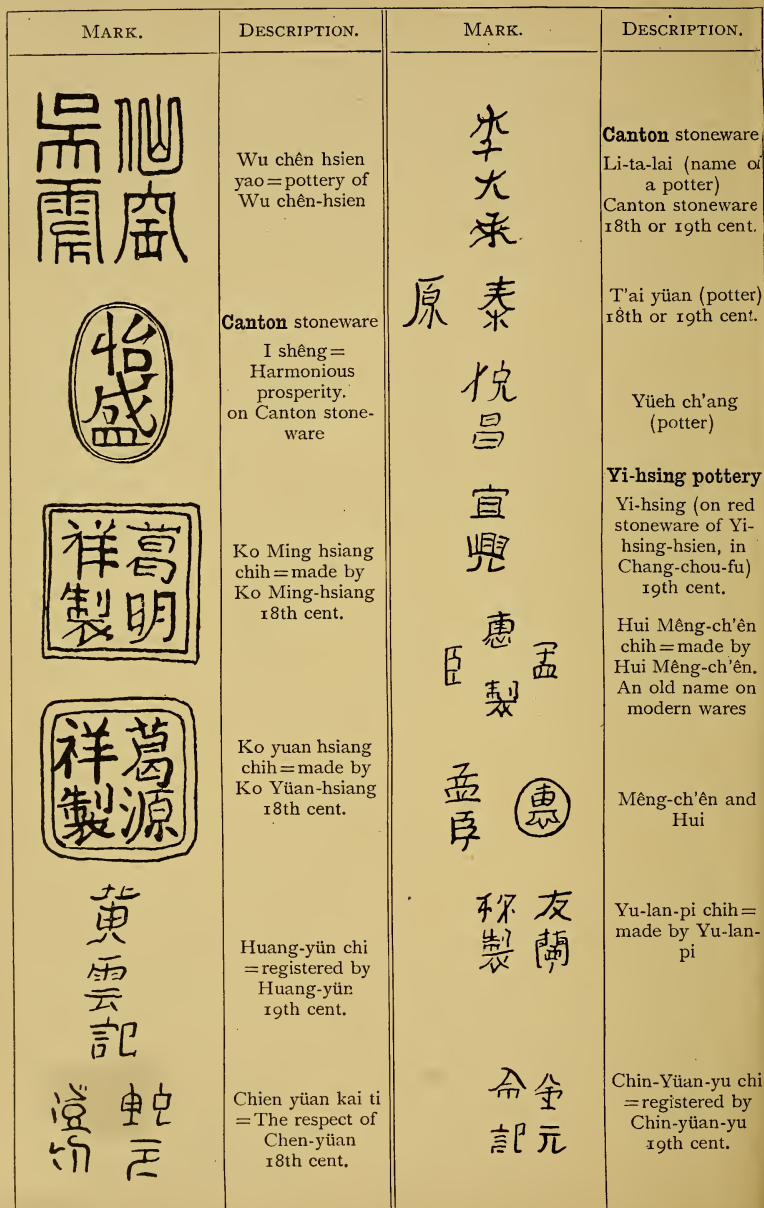 MARK.
DESCRIPTION.
吳
仙窑
Wu chên hsien
yao=pottery of
Wu chên-hsien
怡
盛
Canton stoneware
I shêng=
Harmonious
prosperity.
on Canton stone-
ware
葛明
祥製
Ko Ming hsiang
chih=made by
Ko Ming-hsiang
18th cent.
葛源
祥製
Ko yuan hsiang
chih=made by
Ko Yüan-hsiang
18th cent.
黃雲記
Huang-yün chi
=registered by
Huang-yün
19th cent.
Chien yüan kai ti
=The respect of
Chen-yüan
18th cent.
MARK.
DESCRIPTION.
李大來
Canton stoneware
Li-ta-lai (name of
a potter)
Canton stoneware
18th or 19th cent.
泰
原
T'ai yüan (potter)
18th or 19th cent.
悅昌
Yüeh ch'ang
(potter)
宜興
Yi-hsing pottery
Yi-hsing (on red
stoneware of Yi-
hsing-hsien, in
Chang-chou-fu)
19th cent.
惠
孟
臣
製
Hui Mêng-ch'ên
chih=made by
Hui Mêng-ch'ên.
An old name on
modern wares
孟臣
惠
Mêng-ch'ên and
Hui
友蘭
製
Yu-lan-pi chih=
made by Yu-lan-
pi
金元
記
Chin-Yüan-yu chi
=registered by
Chin-yüan-yu
19th cent.